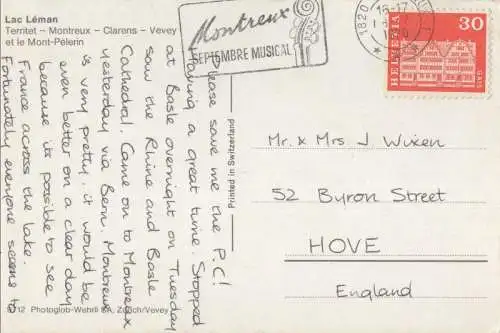 Lac Léman
Territet – Montreux – Clarens – Vevey
et le Mont-Pèlerin
Montreux
SEPTEMBRE MUSICAL
1820
16-17
HELVETIA
30
GAIS
Please save me the P.C!
Having a great time. Stopped
at Basle overnight on Tuesday
saw the Rhine and Basle
Cathedral. Came on to Montreux
yesterday via Bern. Montreux
is very pretty. it would be
even better on a clear day
because its possible to see
France across the lake.
Fortunately everyone seems to
Printed in Switzerland
Mr. x Mrs J Wixen
52 Byron Street
HOVE
England
12 Photoglob-Wehrli SA, Zürich/Vevey